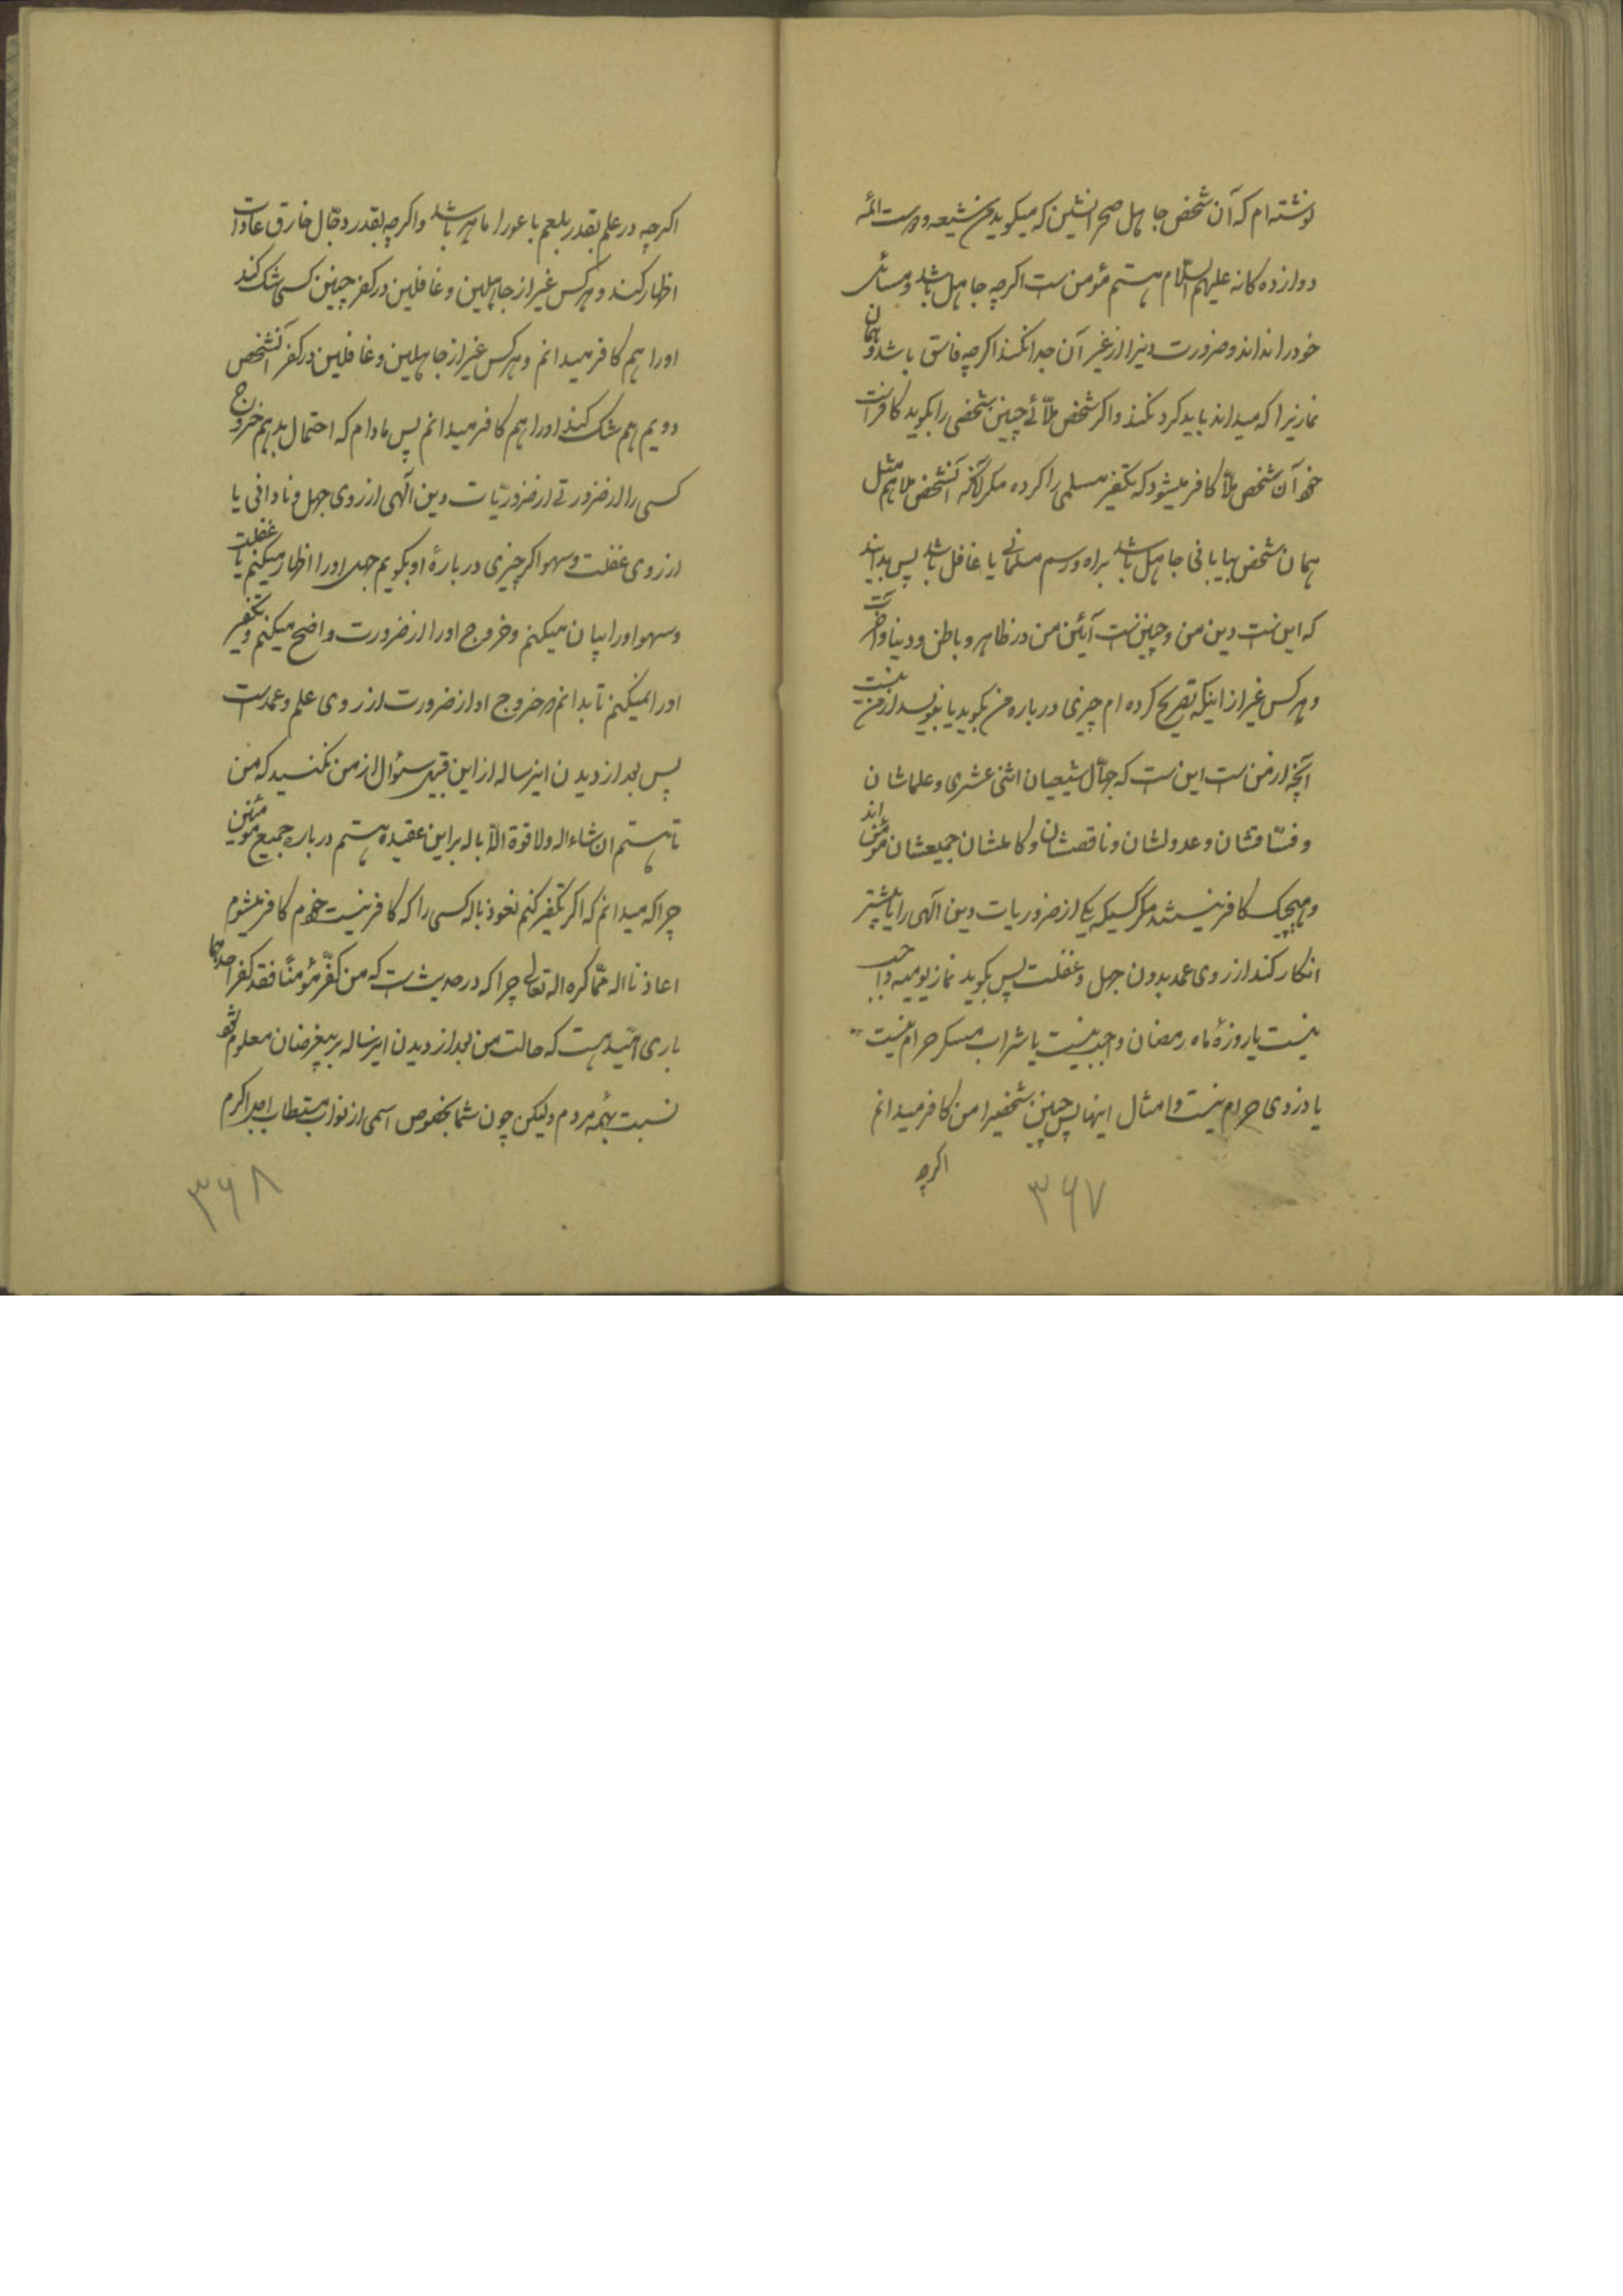 نوشته‌ام که آن شخص جاهل صحرانشین که میکوید من شیعه و دوست ائمه
دوازده کانه علیهم السّلام هستم مؤمن است اکرچه جاهل باشد و مسائل
خود را نداند و ضرورت دینرا از غیر آن جدا نکند اکرچه فاسق باشد و همان
نمازیرا که میداند باید کرد نکند و اکر شخص ملّائی چنین شخصی را بکوید کافر است
خود آن شخص ملّا کافر میشود که تکفیر مسلمی را کرده مکر آنکه آنشخص ملا هم مثل
همان شخص بیابانی جاهل باشد براه و رسم مسلمانی یا غافل باشد پس بدانید
که این است دین من و چنین است آئین من در ظاهر و باطن و دنیا و آخرت
و هرکس غیر از اینکه تصریح کرده‌ام چیزی درباره من بکوید یا بنویسد از من نیست
آنچه از من است این است که جهّال شیعیان اثنی عشری و علماشان
و فسّاقشان و عدولشان و ناقصشان و کاملشان جمیعشان مؤمن اند
و هیچیک کافر نیستند مکر کسیکه یکی از ضروریات دین آلهی را یا بیشتر
انکار کند از روی عمد بدون جهل و غفلت پس بکوید نماز یومیه واجب
نیست یا روزهٔ ماه رمضان واجب نیست یا شراب مسکر حرام نیست
یا دزدی حرام نیست و امثال اینها پس چنین شخصیرا من کافر میدانم
اکرچه
۳۶۷
اکرچه در علم بقدر بلعم باعورا ماهر باشد و اکرچه بقدر دجّال خارق عادات
اظهار کند و هرکس غیر از جاهلین و غافلین در کفر چنین کسی شک کند
او را هم کافر میدانم و هرکس غیر از جاهلین و غافلین در کفر آنشخص
دویم هم شک کند او را هم کافر میدانم پس مادام که احتمال بدهم خروج
کسی را از ضرورتی از ضروریّات دین آلهی از روی جهل و نادانی یا
از روی غفلت و سهو اکر چیزی دربارهٔ او بکویم جهل او را اظهار میکنم یا غفلت
و سهو او را بیان میکنم و خروج او را از ضرورت واضح میکنم و تکفیر
او را نمیکنم تا بدانم که خروج او از ضرورت از روی علم و عمد است
پس بعد از دیدن اینرساله از این قبیل سئوال از من نکنید که من
تا هستم ان شاء اله و لا قوة الّا باله بر این عقیده هستم درباره جمیع مؤمنین
چرا که میدانم که اکر تکفیر کنم نعوذ باله کسی را که کافر نیست خودم کافر میشوم
اعاذنا اله عمّا کره اله تعالی چرا که در حدیث است که من کفّر مؤمنًا فقد کفر احدهما
باری امّید هست که حالت من بعد از دیدن اینرساله بر بیغرضان معلوم شود
نسبت بهمه مردم ولیکن چون شما بخصوص اسمی از نواب مستطاب امجد اکرم
۳۶۸